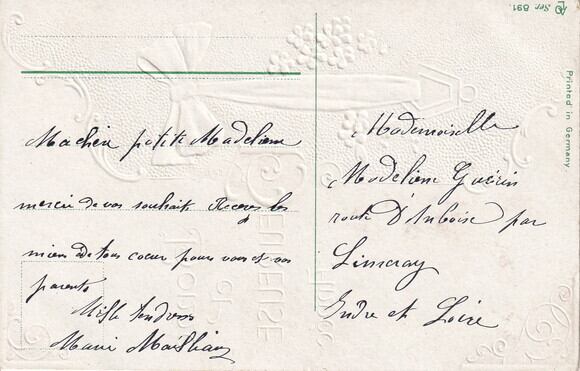 Ser. 891.
Printed in Germany
Ma chère petite Madeleine
merci de vos souhaits Recevez les
miens de tous coeur pour vous et vos
parents
Mille tendress
Marie
Mademoiselle
Madeleine Guérin
route D'Amboise par
Limeray
Indre et Loire